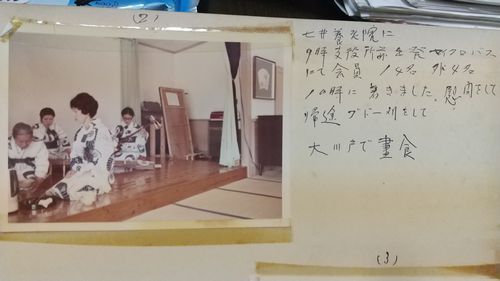 (2)
七井養老院に
9時支役所前を発 マイクロバス
にて会員 14名 外4名
10時に着きました、慰問をして
帰途 ブドー刈をして
大川戸で昼食
(3)